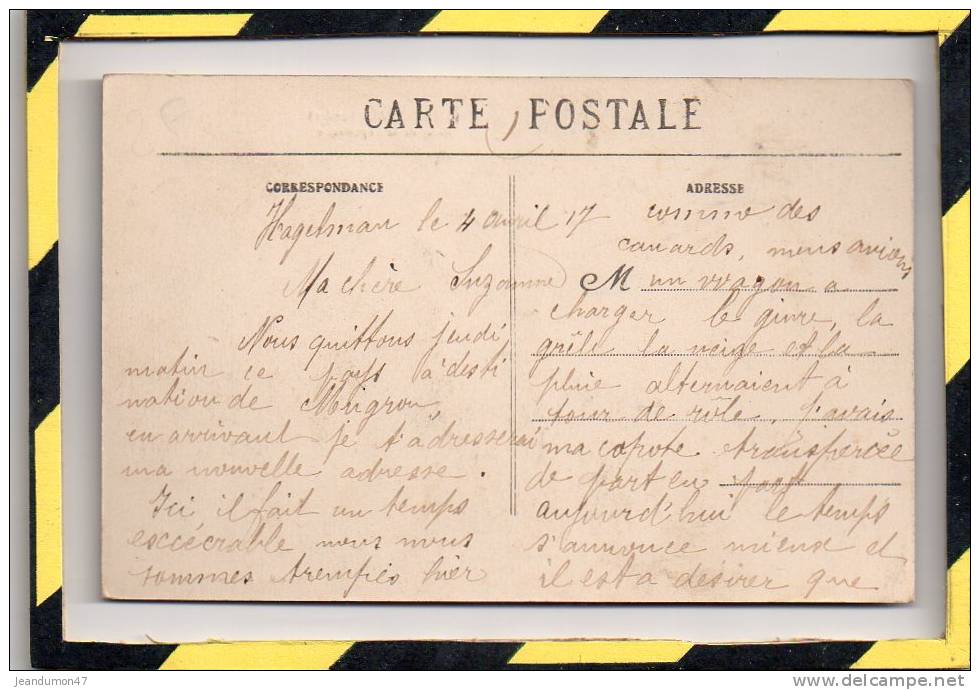 CARTE POSTALE
CORRESPONDANCE
Hagetmau le 4 avril 17
Ma chère Suzanne
Nous quittons jeudi
matin ce pays à desti
nation de Mugron,
en arrivant je t'adresserai
ma nouvelle adresse.
Ici il fait un temps
exciécrable nous nous
sommes trempés hier
ADRESSE
comme des
canards, nous avions
M un wagon a
charger le givre, la
grêle la neige et la
pluie alternaient à
tour de rôle, j'avais
ma capote transpercée
de part en part
aujourd'hui le temps
s'annonce mieux et
il est a désirer que
jeandumon47
delcampe.net